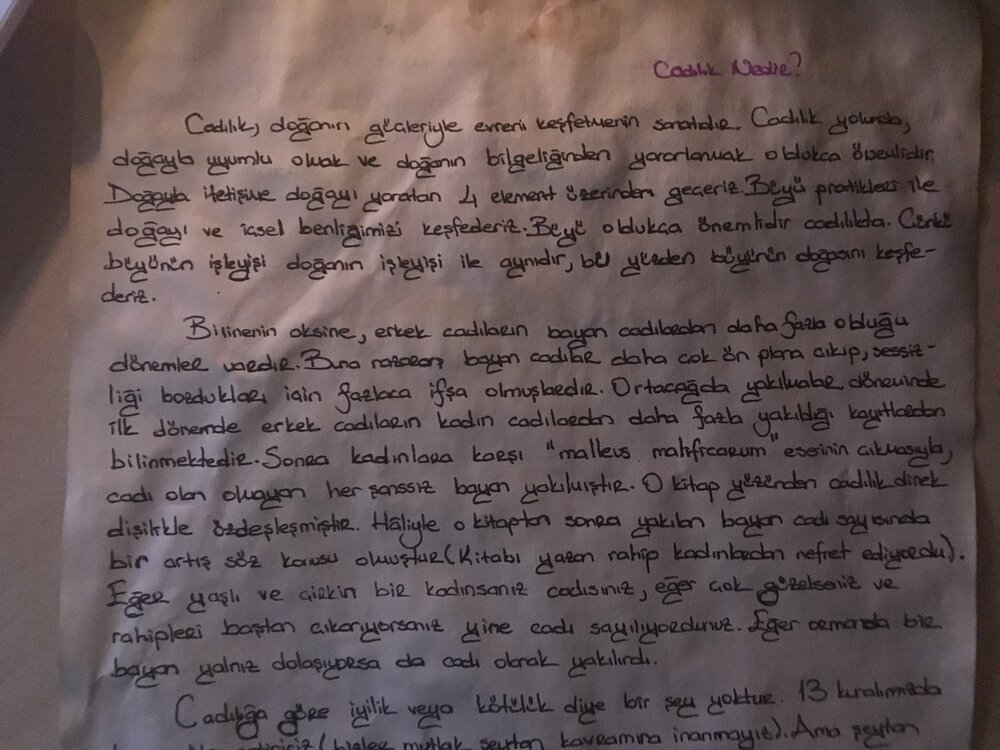 Cadılık Nedir?
Cadılık, doğanın güçleriyle evreni keşfetmenin sanatıdır. Cadılık yolunda,
doğayla uyumlu olmak ve doğanın bilgeliğinden yararlanmak oldukca önemlidir.
Doğayla iletişime doğayı yaratan 4 element üzerinden geçeriz. Büyü pratikleri ile
doğayı ve içsel benliğimizi keşfederiz. Büyü oldukca önemlidir cadılıkta. Çünkü
büyünün işleyişi doğanın işleyişi ile aynıdır, bu yüzden büyünün doğasını keşfe-
deriz.
Bilinenin aksine, erkek cadıların bayan cadılardan daha fazla olduğu
dönemler vardır. Buna nazaran bayan cadılar daha çok ön plana çıkıp, sessiz-
liği bozdukları için fazlaca ifşa olmuşlardır. Ortaçağda yakılmalar döneminde
ilk dönemde erkek cadıların kadın cadılardan daha fazla yakıldığı kayıtlardan
bilinmektedir. Sonra kadınlara karşı "malleus malificarum" eserinin çıkmasıyla,
cadı olan olmayan her şanssız bayan yakılmıştır. O kitap yüzünden cadılık direk
dişilikle özdeşleşmiştir. Hâliyle o kitaptan sonra yakılan bayan cadı sayısında
bir artış söz konusu olmuştur (Kitabı yazan rahip kadınlardan nefret ediyordu).
Eğer yaşlı ve çirkin bir kadınsanız cadısınız, eğer çok güzelseniz ve
rahipleri baştan çıkarıyorsanız yine cadı sayılıyordunuz. Eğer ormanda bir
bayan yalnız dolaşıyorsa da cadı olarak yakılırdı.
Cadılığa göre iyilik veya kötülük diye bir şey yoktur. 13 kuralımızda
(bizler mutlak şeytan kavramına inanmayız). Ama şeytan